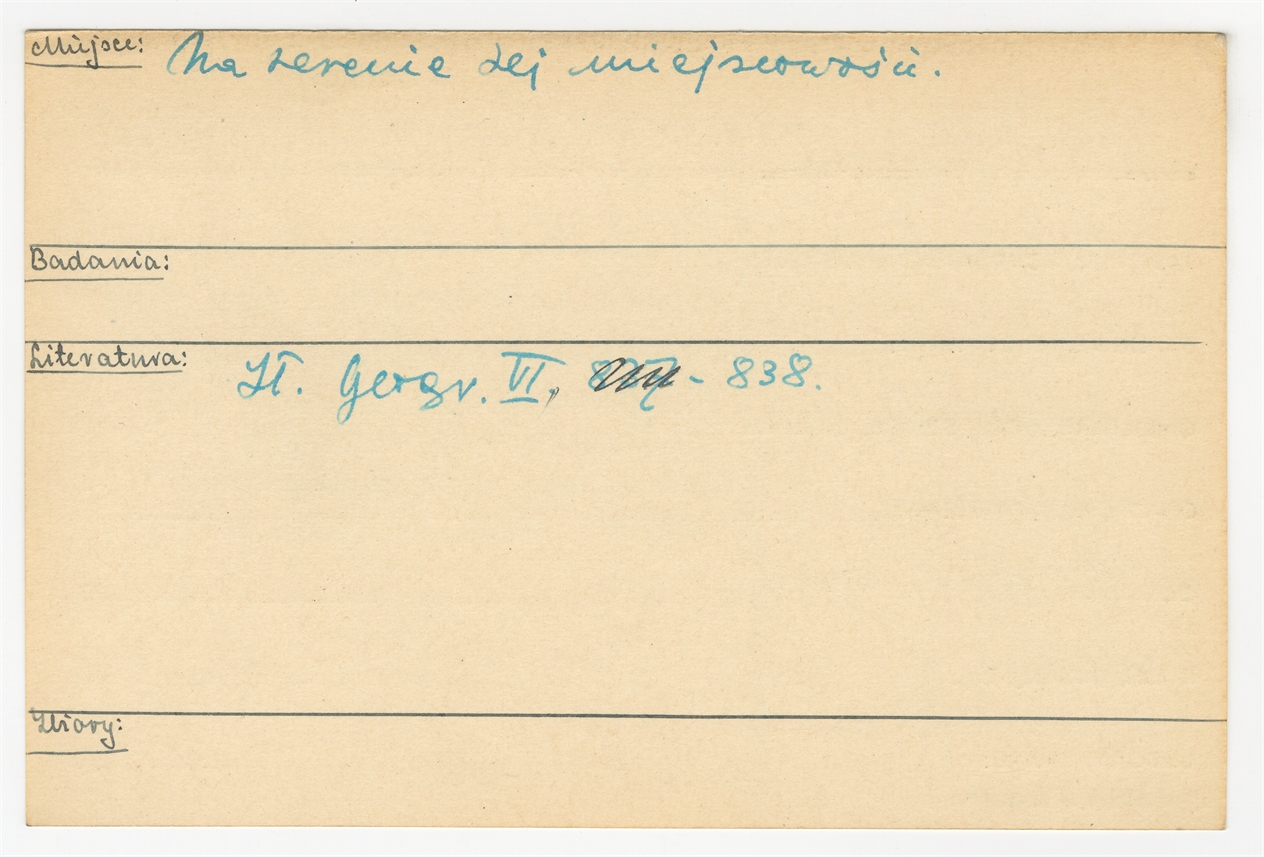 Miejsce: Na terenie tej miejscowości.
Badania:
Literatura: Sł. Geogr. VI, - 838.
Zbiory: